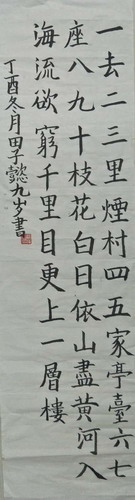 一去二三里煙村四五家亭臺六七
座八九十枝花白日依山盡黃河入
海流欲窮千里目更上一層樓
丁酉冬月田子懿九岁書